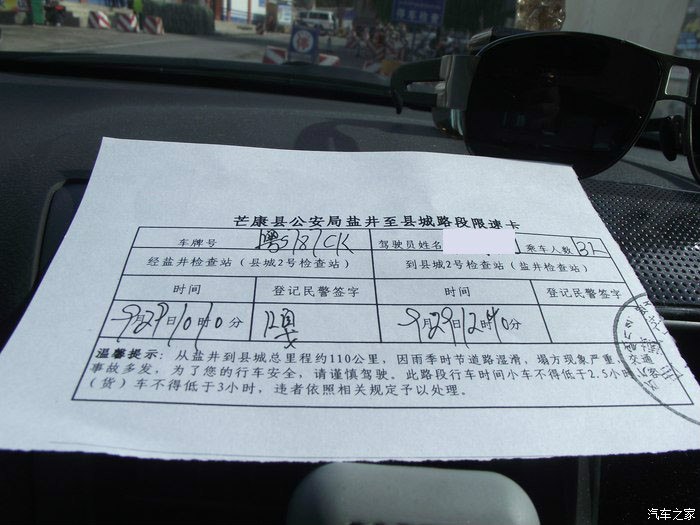 芒康县公安局盐井至县城路段限速卡
车牌号 粤S181CK 驾驶员姓名 乘车人数 3人
经盐井检查站（县城2号检查站） 到县城2号检查站（盐井检查站）
时间 登记民警签字 时间 登记民警签字
9月29日10时10分 9月29日12时40分
温馨提示：从盐井到县城总里程约110公里，因雨季时节道路湿滑，塌方现象严重，交通
事故多发，为了您的行车安全，请谨慎驾驶。此路段行车时间小车不得低于2.5小时，客
（货）车不得低于3小时，违者依照相关规定予以处理。
汽车之家